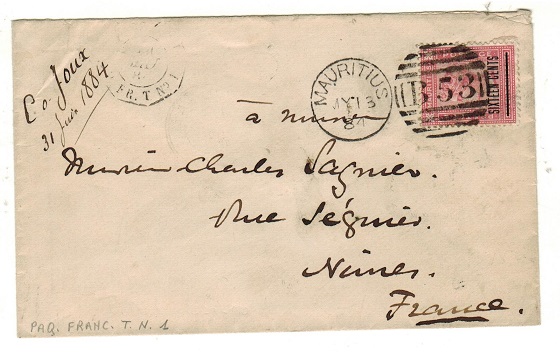 Co. Joux
31 Juin 1884
FR. T. No 1
MAURITIUS
MY 13
84
B 53
SIXTEEN CENTS
à
Monsieur Charles Sagnier
Rue Séguier.
Nîmes.
France.
PAQ. FRANC. T. N. 1